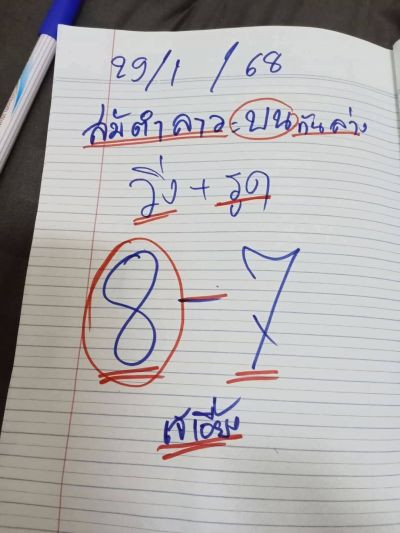 29/1/68
ส้มตำลาว=บนกันล่าง
วิ่ง+รูด
8-7
เจ๊เอี้ยง